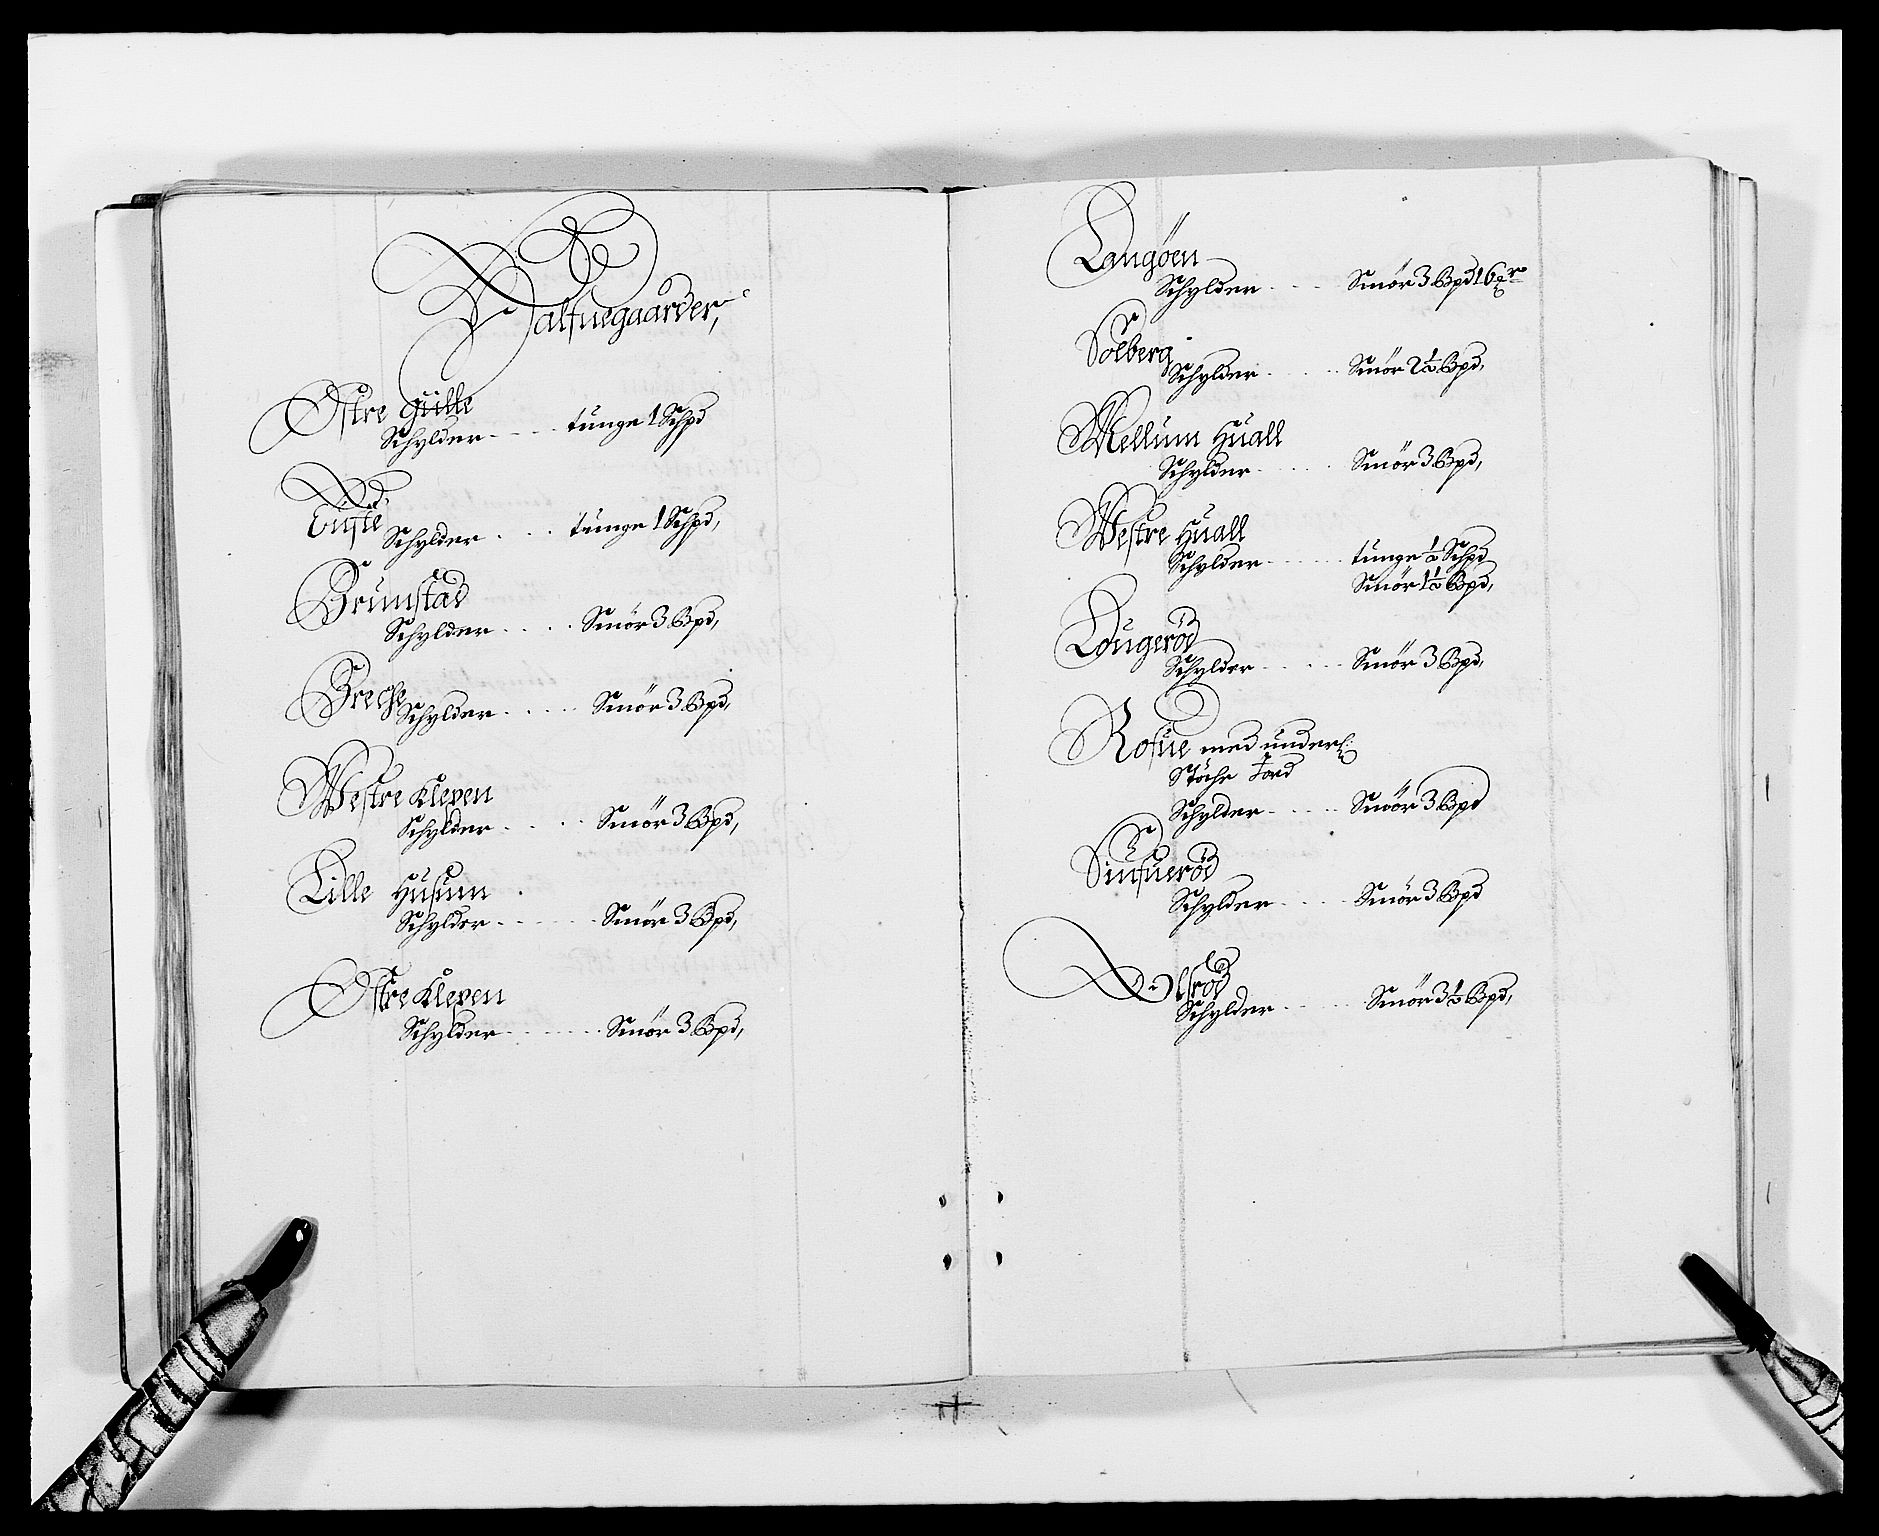 Halfuegaarder,
Ostre Gülle
Schylder - - - - tunge 1 Schpd
Tufte
Schylder . . . . tunge 1 Schpd,
Grimstad
Schylder . . . . Smör 3 Bpd,
Greche
Schylder . . . . . Smör 3 Bpd,
Westre Kleven
Schylder . . . . Smör 3 Bpd,
Lille Husum
Schylder - - - - - Smör 3 Bpd,
Ostre Kleven
Schylder - - - - - Smör 3 Bpd,
Langöen
Schylder - - - - Smör 3 Bpd 16
Solberg
Schylder . . . . . Smör 2½ Bpd,
Mellum Huall
Schylder . . . . . Smör 3 Bpd,
Westre Huall
Schylder - - - - - tunge ½ Schpd
Smör 1½ Bpd,
Lougeröd
Schylder - - - - - Smör 3 Bpd,
Rofue med underl:
Stöche Jord
Schylder - - - - - Smör 3 Bpd
Sinfueröd
Schylder . . . . . Smör 3 Bpd
Olsröd
Schylder - - - - - Smör 3½ Bpd,